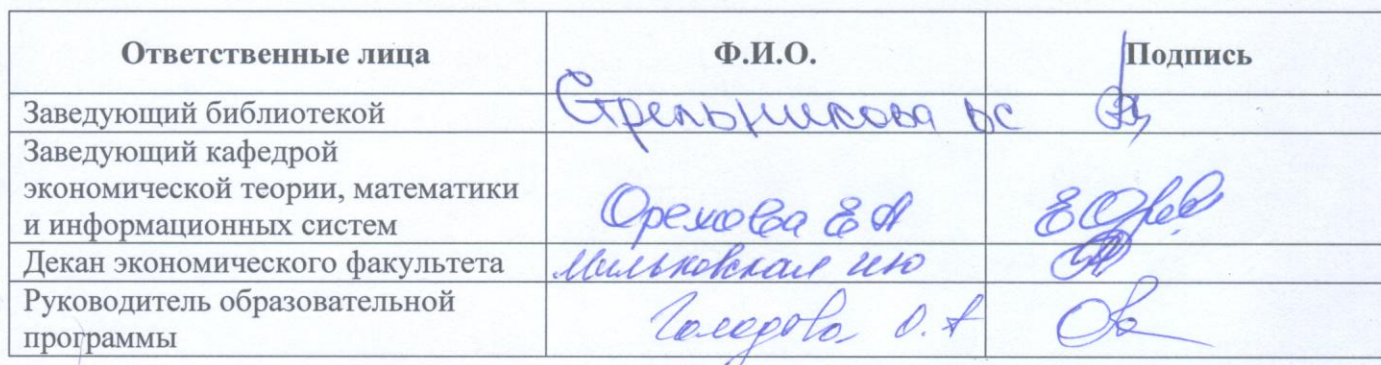 Ответственные лица Ф.И.О. Подпись
Заведующий библиотекой Стрельникова ВС
Заведующий кафедрой
экономической теории, математики
и информационных систем Орехова Е А
Декан экономического факультета Мильковская ию
Руководитель образовательной О. А
программы